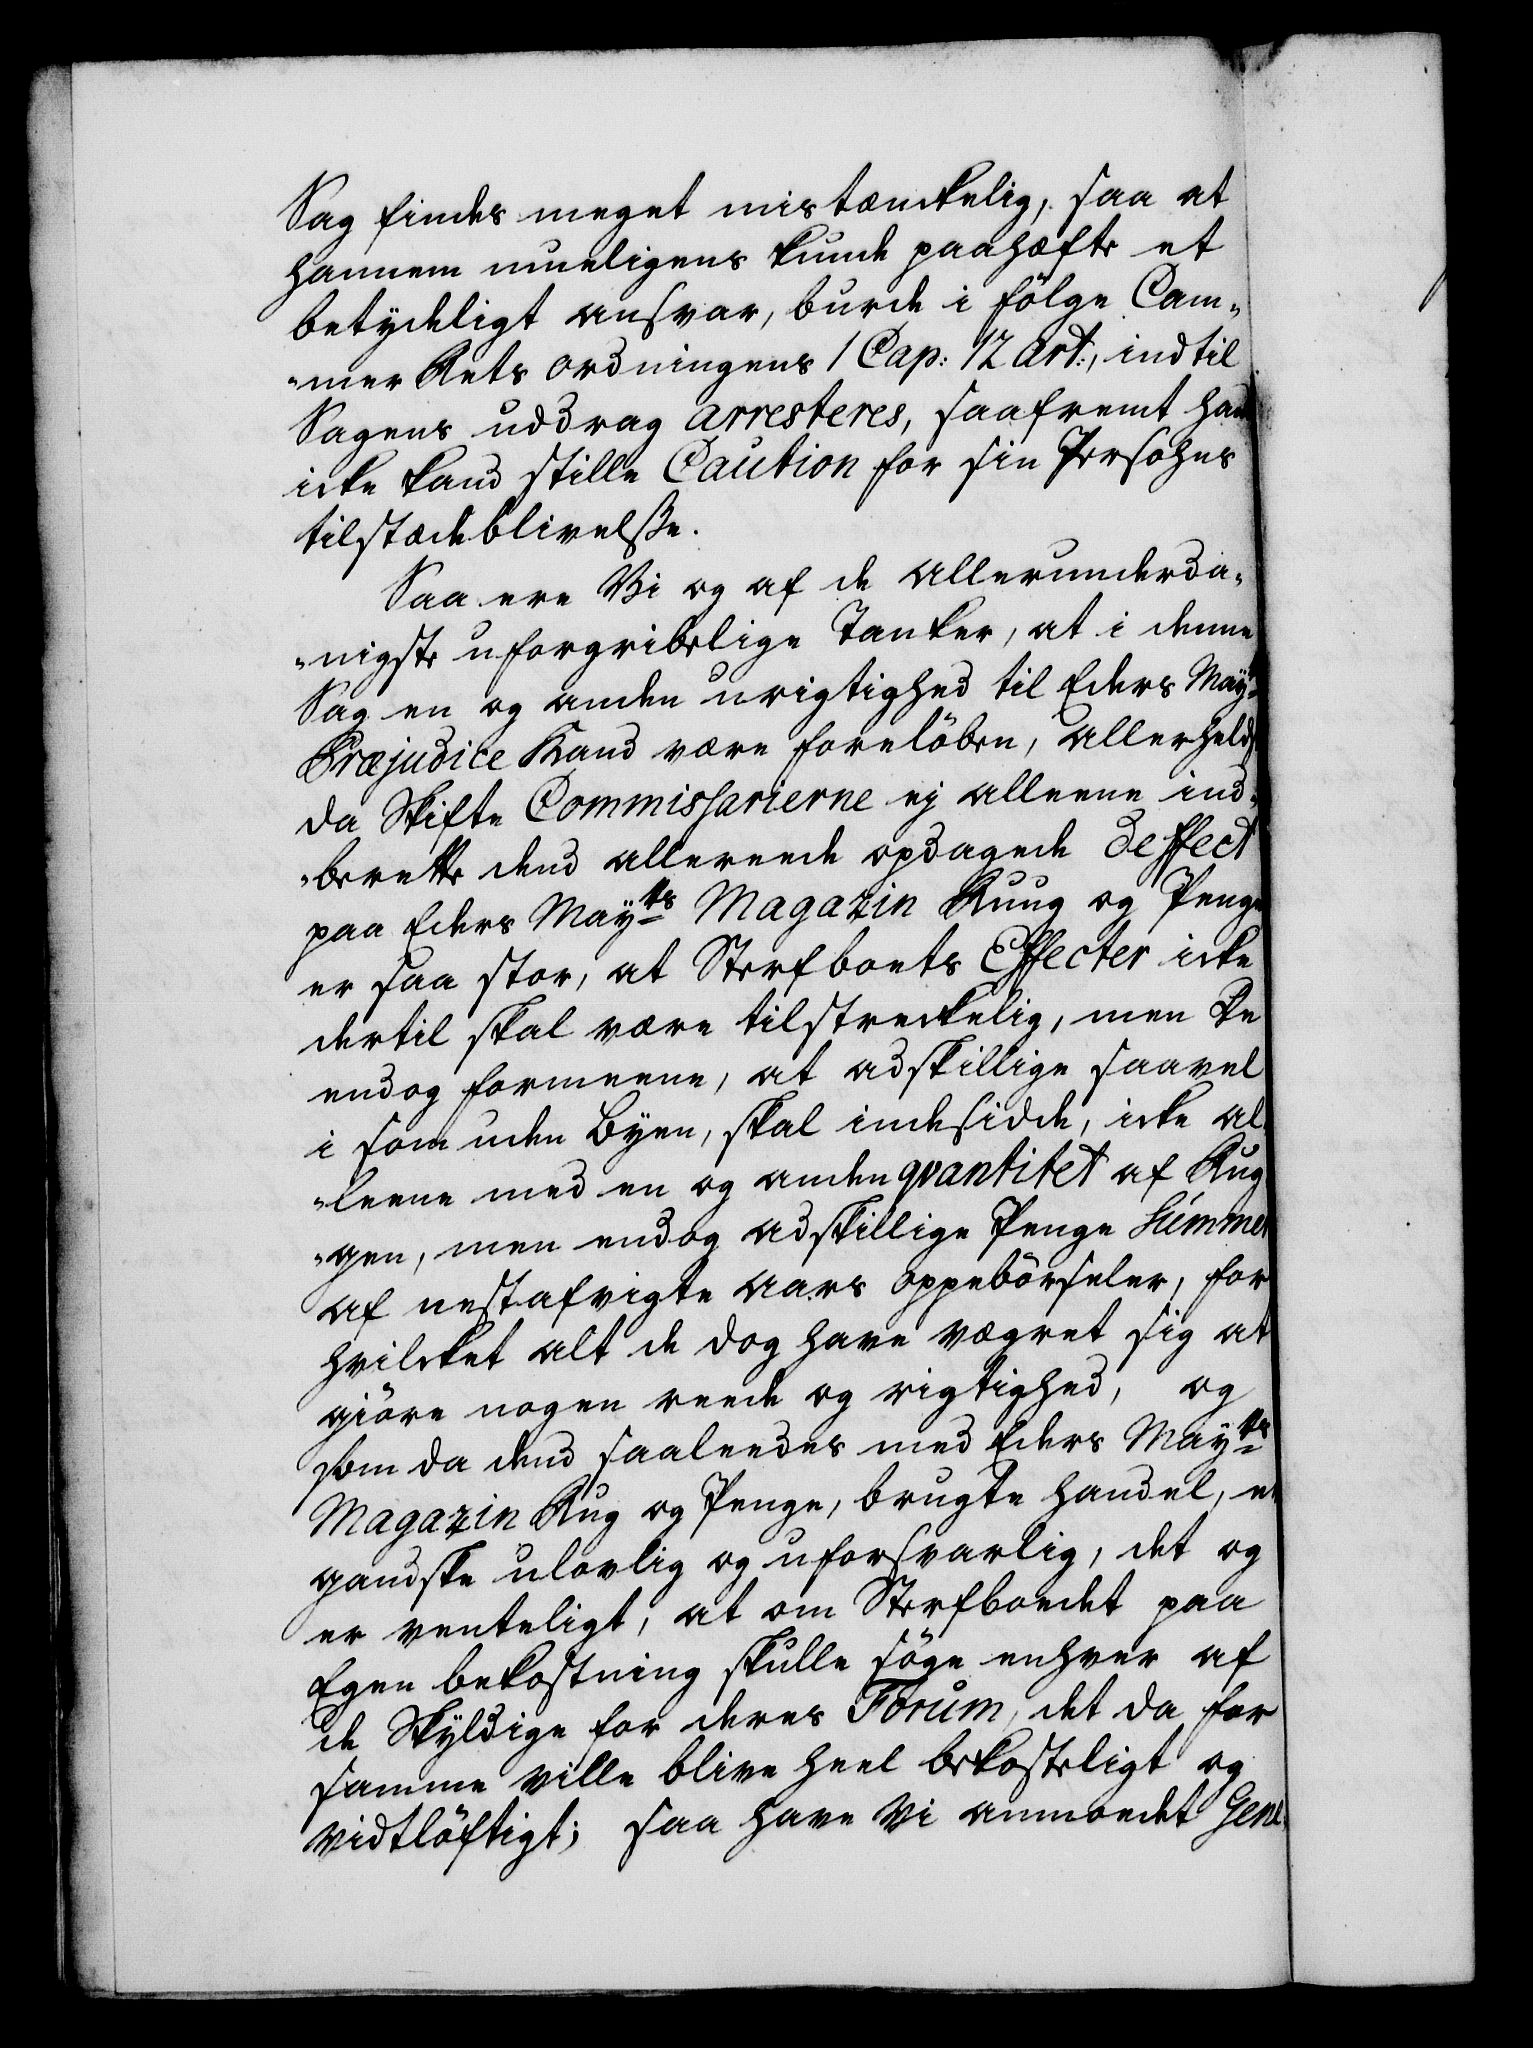 Sag findes meget mistænckelig, saa at
hannem mueligens kunde paahæfte et
betydeligt ansvar, burde i fölge Cam-
-mer Rets ordningens 1 Cap: 12 Art:, indtil
Sagens uddrag arresteres, saafremt hand
icke kand stille Caution for sin Persohns
tilstædeblivelsse.
Saa ere Vi og af de allerunderda-
-nigste uforgribelige Tanker, at i denne
Sag en og anden urigtighed til Eders May:
Præjudice kand være foreløben, allerhelst
da Skifte Commissarierne ej alleene ind-
-berette dend allereede opdagede Deffect
paa Eders Mayts Magazin Ruug og Penge
er saa stor, at Sterfboets Effecter icke
dertil skal være tilstreckelig, men de
endog formeene, at adskillige saavel
i som uden Byen, skal indesidde, icke al-
-leene med en og anden qvantitet af Rug
-gen, men endog adskillige Penge Summer
af nestafvigte Aars oppebörseler, for
hvilcket alt de dog have vægret sig at
giöre nogen reede og rigtighed, og
som da dend saaleedes med Eders Mayts
Magazin Rug og Penge, brugte handel, er
gandske ulovlig og uforsvarlig, det og
er venteligt, at om Sterfboedet paa
Egen bekostning skulle söge enhver af
de Skyldige for deres Forum, det da for
samme ville blive heel bekosteligt og
vidtlöftigt; saa have Vi anmoedet Gene-